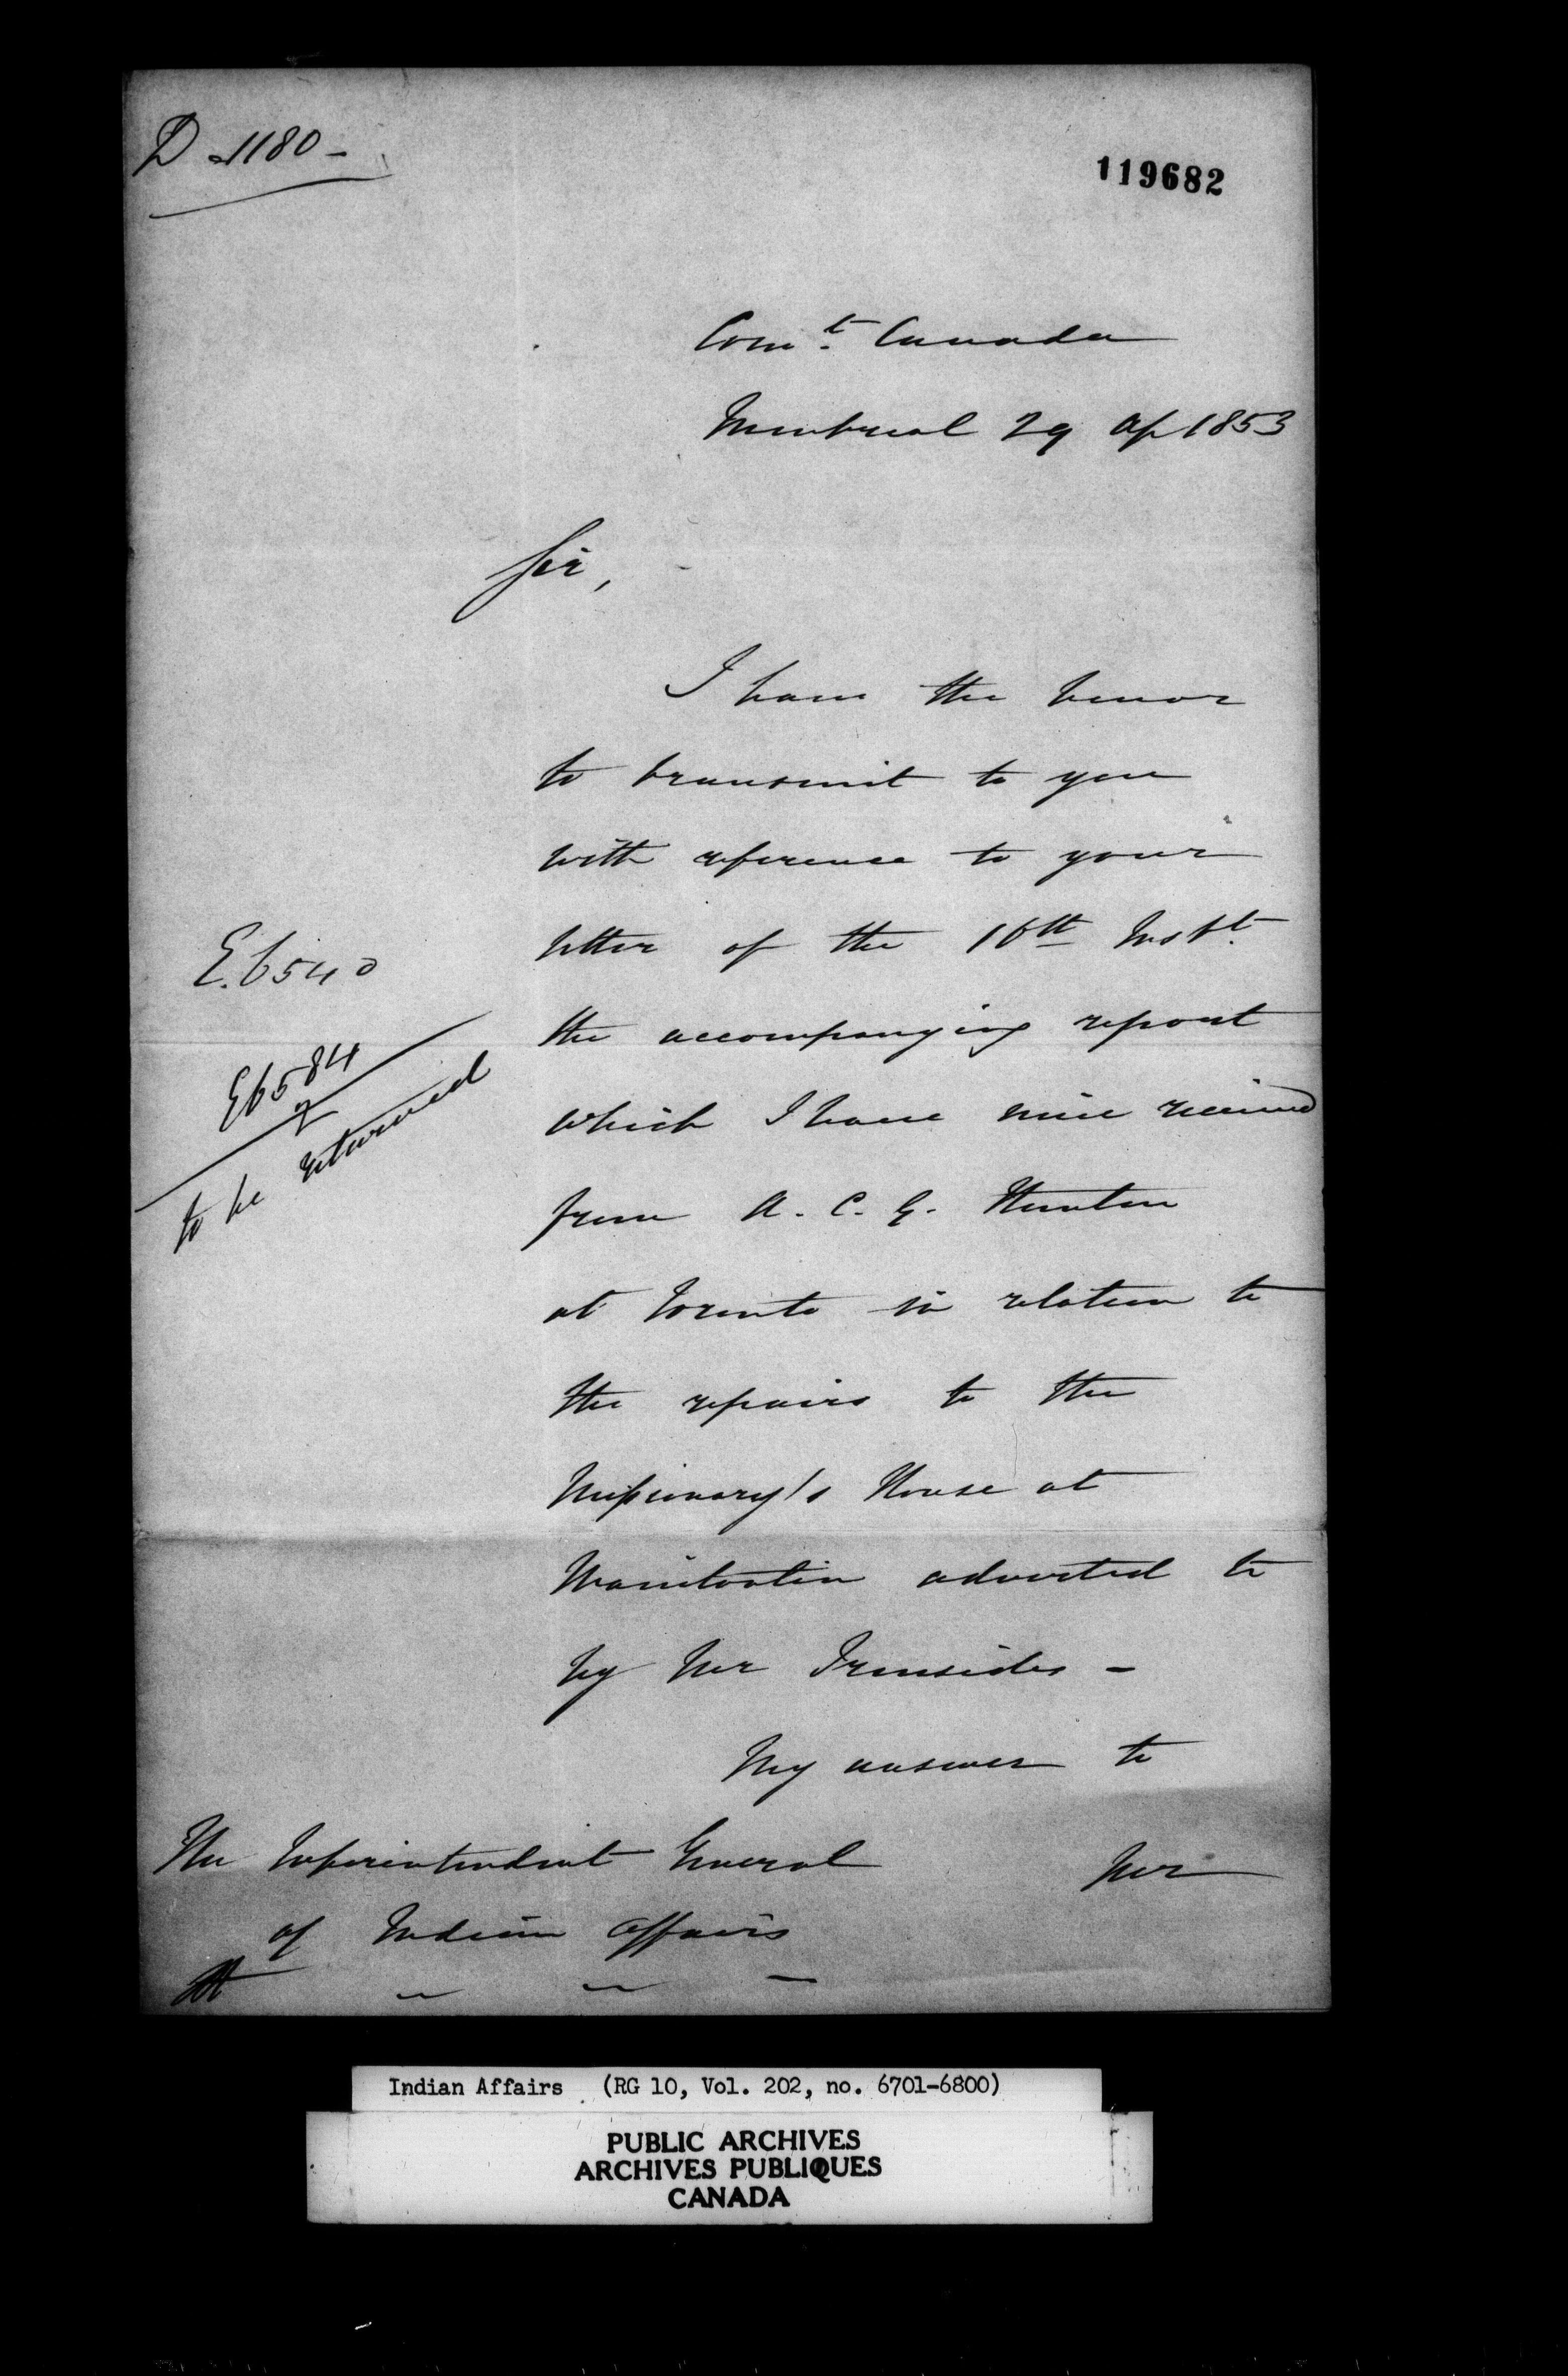 D - 1180 -
119682
Comt. Canada
Montreal 29 Ap 1853
Sir,
I have the honor
to transmit to you
with reference to your
letter of the 16th Inst.
the accompanying report
E. 6540
which I have since received
E6584
2
to be returned
from A. C. G.
at Toronto in relation to
the repairs to the
Missionary's House at
Manitoulin adverted to
by Mr Ironsides -
My answer to
The Superintendent General
of Indian Affairs
Mr
Indian Affairs (RG 10, Vol. 202, no. 6701-6800)
PUBLIC ARCHIVES
ARCHIVES PUBLIQUES
CANADA